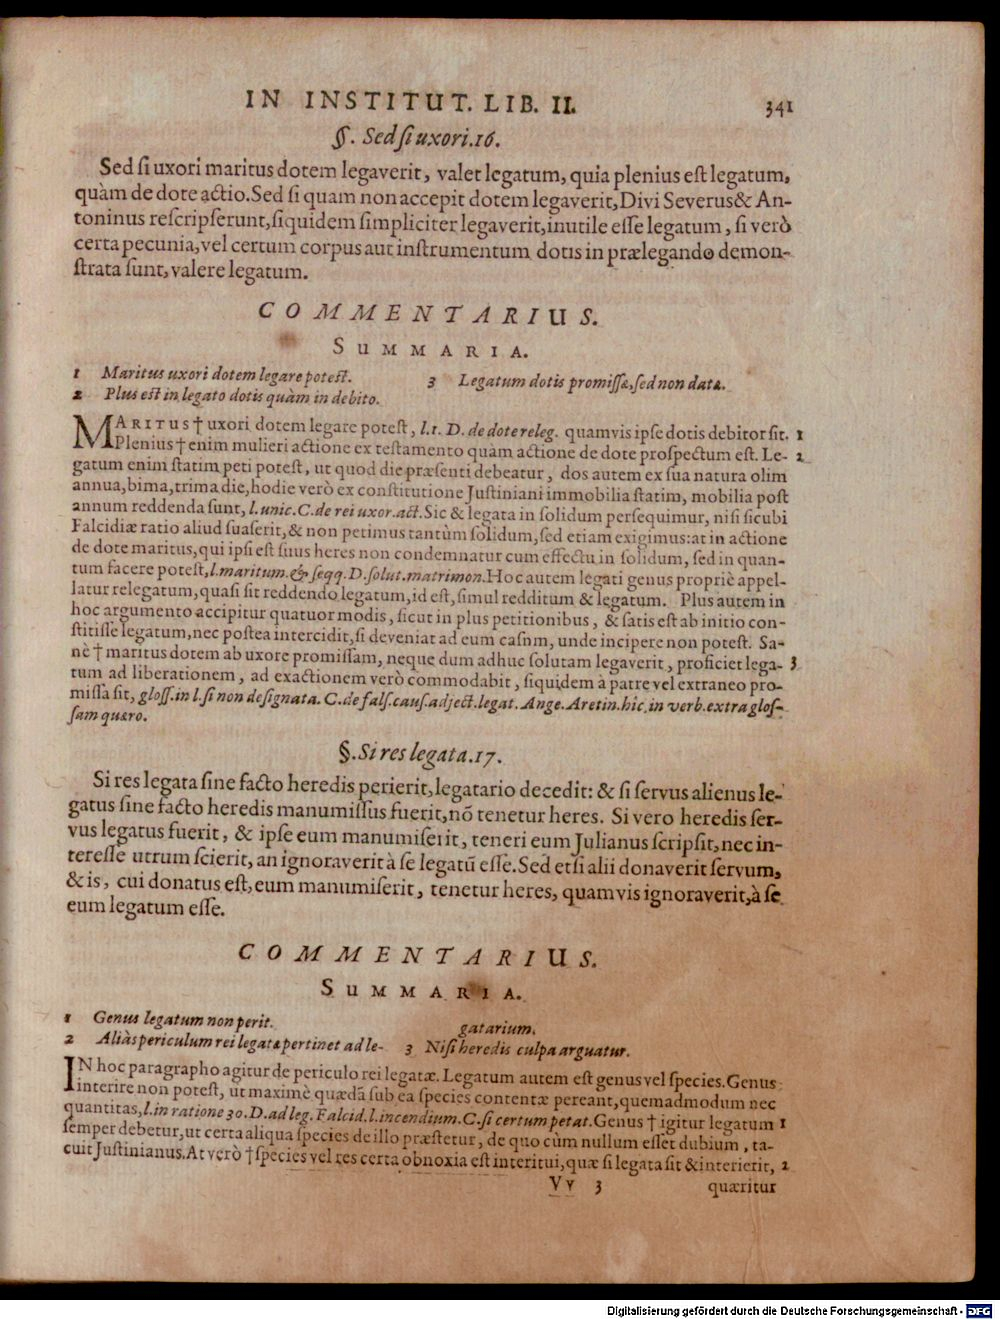 IN INSTITUT. LIB. II. 341
§. Sed ſi uxori. 16.
Sed ſi uxori maritus dotem legaverit, valet legatum, quia plenius eſt legatum,
quàm de dote actio. Sed ſi quam non accepit dotem legaverit, Divi Severus & An-
toninus reſcripſerunt, ſiquidem ſimpliciter legaverit, inutile eſſe legatum, ſi verò
certa pecunia, vel certum corpus aut inſtrumentum dotis in prælegando demon-
ſtrata ſunt, valere legatum.
COMMENTARIUS.
SUMMARIA.
1 Maritus uxori dotem legare poteſt.
2 Plus eſt in legato dotis quàm in debito.
3 Legatum dotis promiſſæ, ſed non datæ.
MARITUS † uxori dotem legare poteſt, l. 1. D. de dote releg. quamvis ipſe dotis debitor ſit. 1
Plenius † enim mulieri actione ex teſtamento quàm actione de dote proſpectum eſt. Le- 2
gatum enim ſtatim peti poteſt, ut quod die præſenti debeatur, dos autem ex ſua natura olim
annua, bima, trima die, hodie verò ex conſtitutione Juſtiniani immobilia ſtatim, mobilia poſt
annum reddenda ſunt, l. unic. C. de rei uxor. act. Sic & legata in ſolidum perſequimur, niſi ſicubi
Falcidiæ ratio aliud ſuaſerit, & non petimus tantùm ſolidum, ſed etiam exigimus: at in actione
de dote maritus, qui ipſi eſt ſuus heres non condemnatur cum effectu in ſolidum, ſed in quan-
tum facere poteſt, l. maritum. & ſeqq. D. ſolut. matrimon. Hoc autem legati genus propriè appel-
latur relegatum, quaſi ſit reddendo legatum, id eſt, ſimul redditum & legatum. Plus autem in
hoc argumento accipitur quatuor modis, ſicut in plus petitionibus, & ſatis eſt ab initio con-
ſtitiſſe legatum, nec poſtea intercidit, ſi deveniat ad eum caſum, unde incipere non poteſt. Sa-
nè † maritus dotem ab uxore promiſſam, neque dum adhuc ſolutam legaverit, proficiet lega- 3
tum ad liberationem, ad exactionem verò commodabit, ſiquidem à patre vel extraneo pro-
miſſa ſit, gloſſ. in l. ſi non deſignata. C. de falſ. cauſ. adject. legat. Ange. Aretin. hîc in verb. extra gloſ-
ſam quæro.
§. Si res legata. 17.
Si res legata ſine facto heredis perierit, legatario decedit: & ſi ſervus alienus le-
gatus ſine facto heredis manumiſſus fuerit, nō tenetur heres. Si vero heredis ſer-
vus legatus fuerit, & ipſe eum manumiſerit, teneri eum Julianus ſcripſit, nec in-
tereſſe utrum ſcierit, an ignoraverit à ſe legatū eſſe. Sed etſi alii donaverit ſervum,
& is, cui donatus eſt, eum manumiſerit, tenetur heres, quamvis ignoraverit, à ſe
eum legatum eſſe.
COMMENTARIUS.
SUMMARIA.
1 Genus legatum non perit.
2 Aliàs periculum rei legatæ pertinet ad le-
gatarium.
3 Niſi heredis culpa arguatur.
IN hoc paragrapho agitur de periculo rei legatæ. Legatum autem eſt genus vel ſpecies. Genus
interire non poteſt, ut maximè quædā ſub ea ſpecies contentæ pereant, quemadmodum nec
quantitas, l. in ratione 30. D. ad leg. Falcid. l. incendium. C. ſi certum petat. Genus † igitur legatum 1
ſemper debetur, ut certa aliqua ſpecies de illo præſtetur, de quo cùm nullum eſſet dubium, ta-
cuit Juſtinianus. At verò † ſpecies vel res certa obnoxia eſt interitui, quæ ſi legata ſit & interierit, 2
Vv 3 quæritur
Digitalisierung gefördert durch die Deutsche Forschungsgemeinschaft - DFG